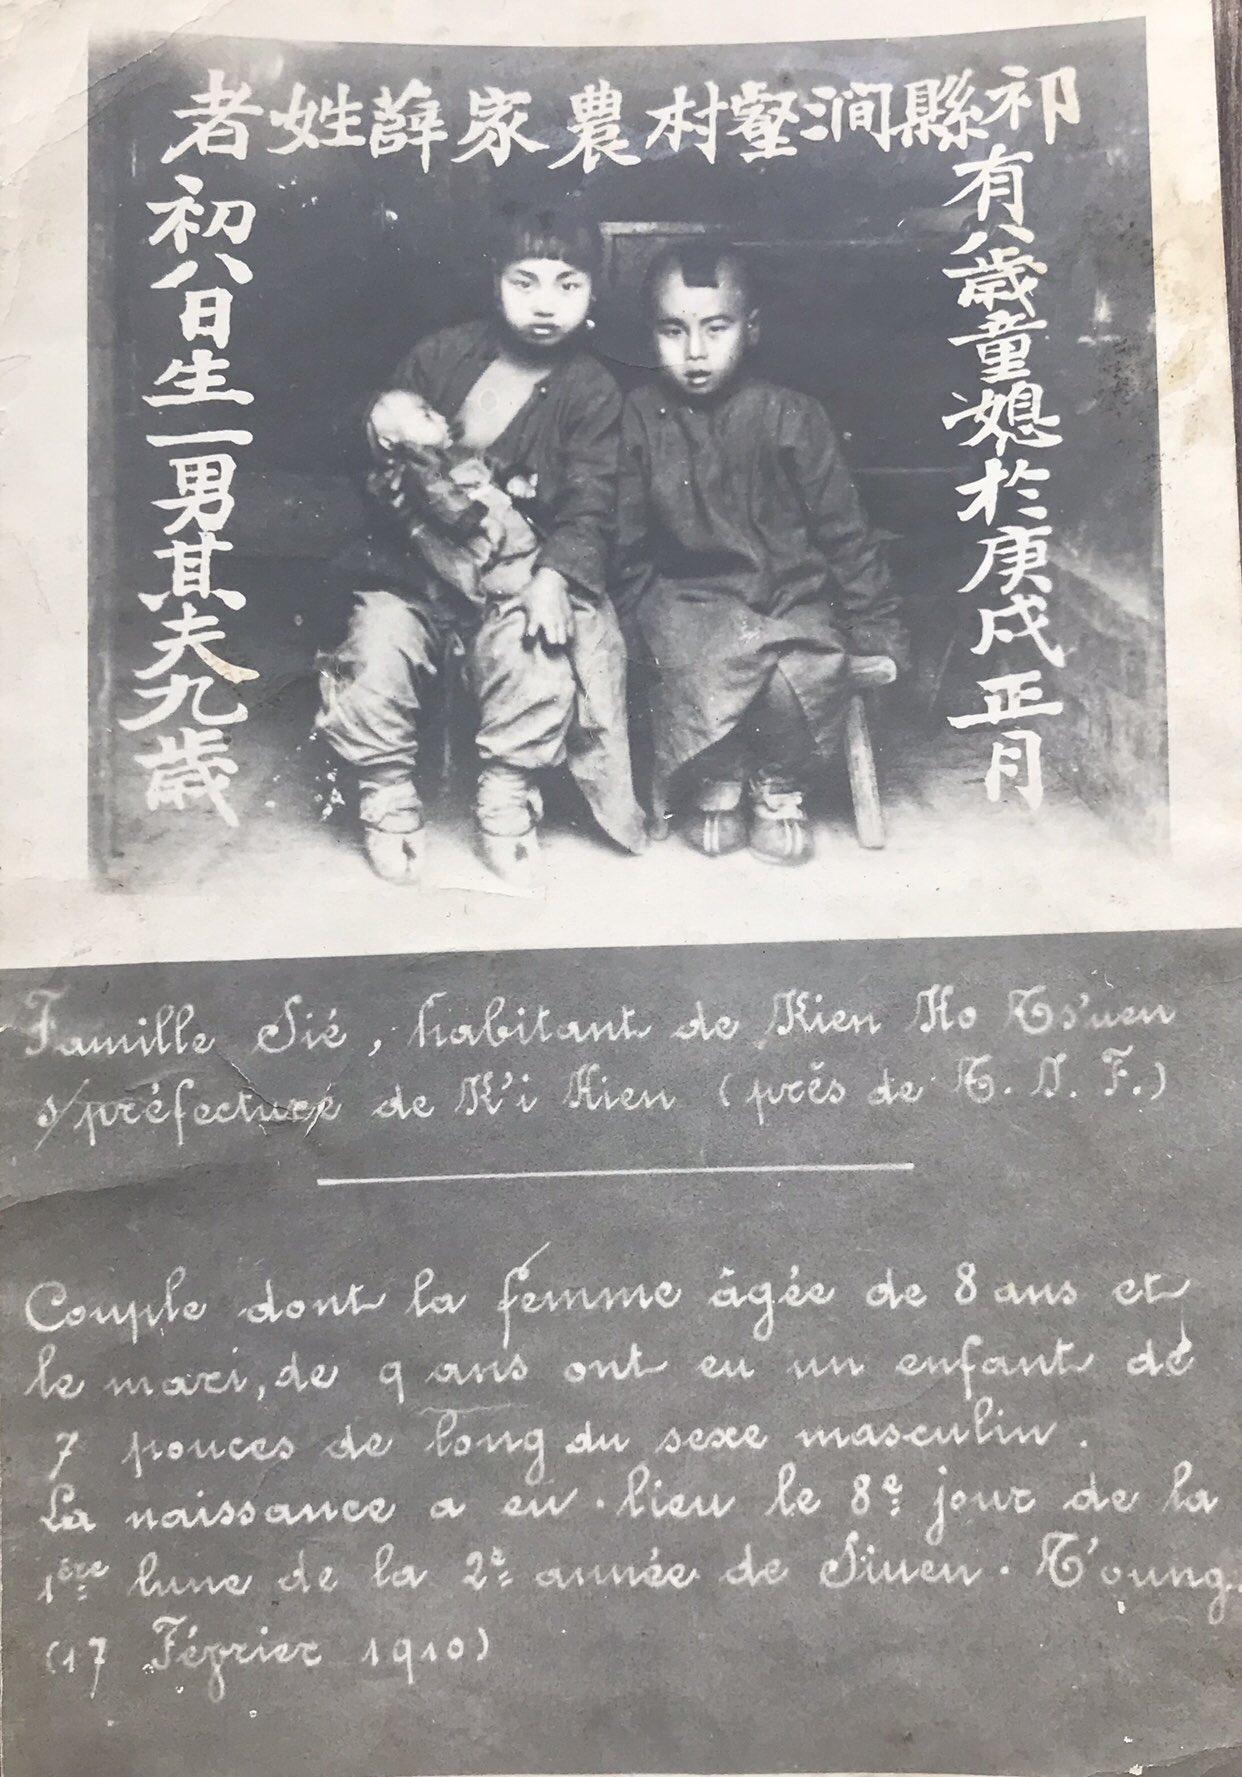 祁縣澗壑村農家薛姓者
有八歲童媳於庚戌正月
初八日生一男其夫九歲
Famille Sié, habitant de Kien Ho Ts'uen
s/préfecture de K'i Hien (près de T. I. F.)
Couple dont la femme âgée de 8 ans et
le mari, de 9 ans ont eu un enfant de
7 pouces de long du sexe masculin.
La naissance a eu lieu le 8e jour de la
1ère lune de la 2e année de Siuen-T'oung.
(17 Février 1910)